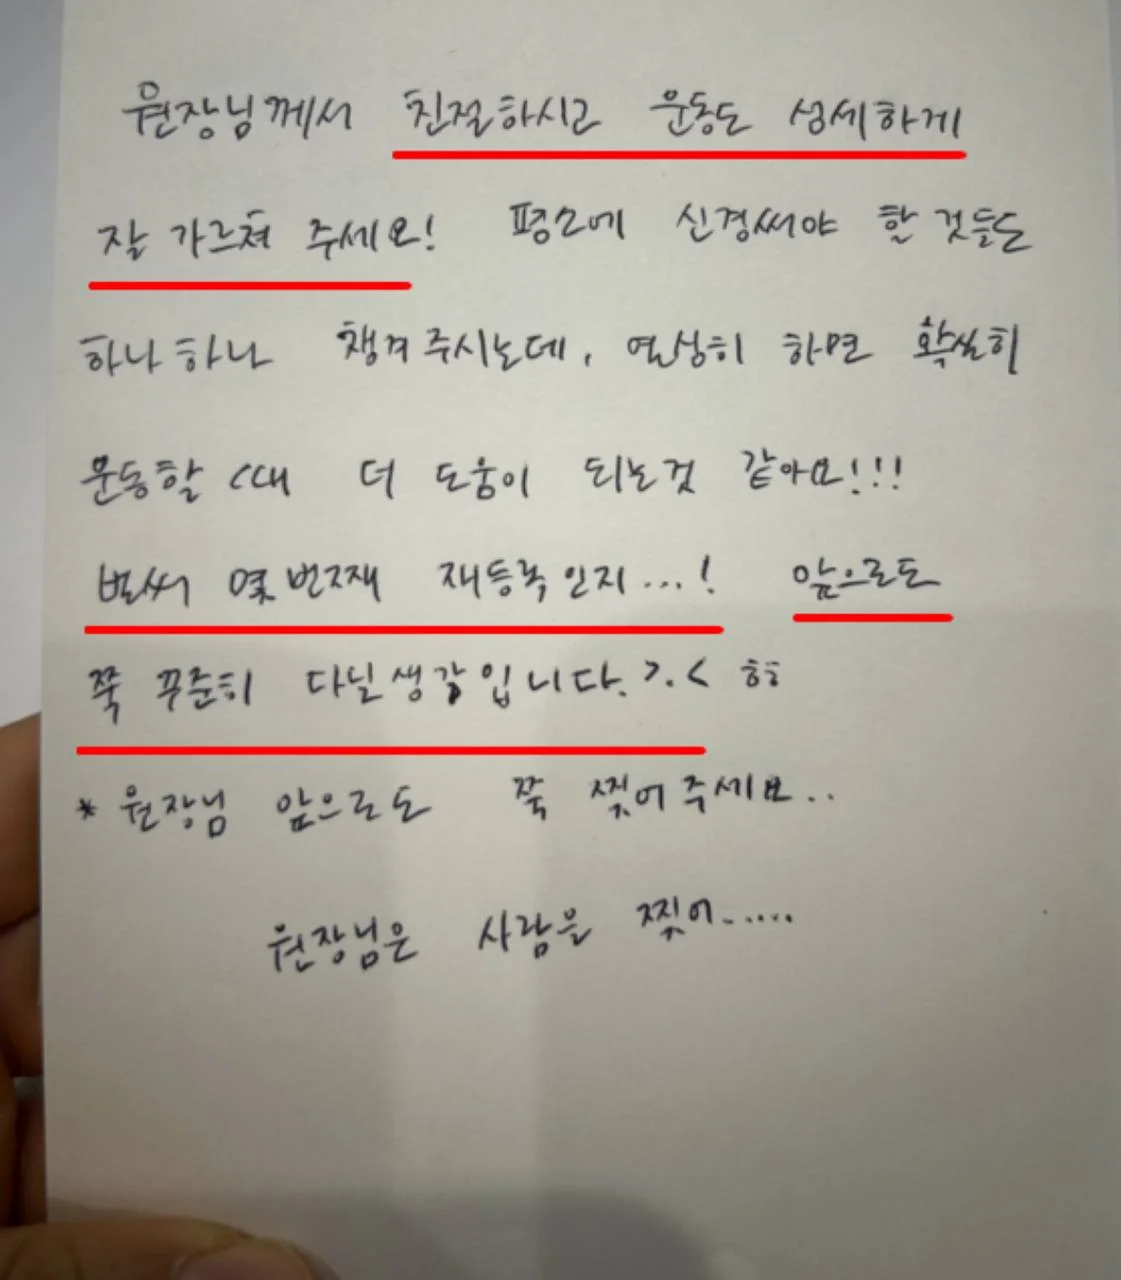 원장님께서 친절하시고 운동도 섬세하게
잘 가르쳐 주세요! 평소에 신경써야 할 것들도
하나하나 챙겨주시는데, 열심히 하면 확실히
운동할 때 더 도움이 되는것 같아요!!!
벌써 몇번째 재등록인지...! 앞으로도
쭉 꾸준히 다닐생각입니다.>.< ㅎㅎ
* 원장님 앞으로도 쭉 찢어주세요..
원장님은 사람을 찢어......